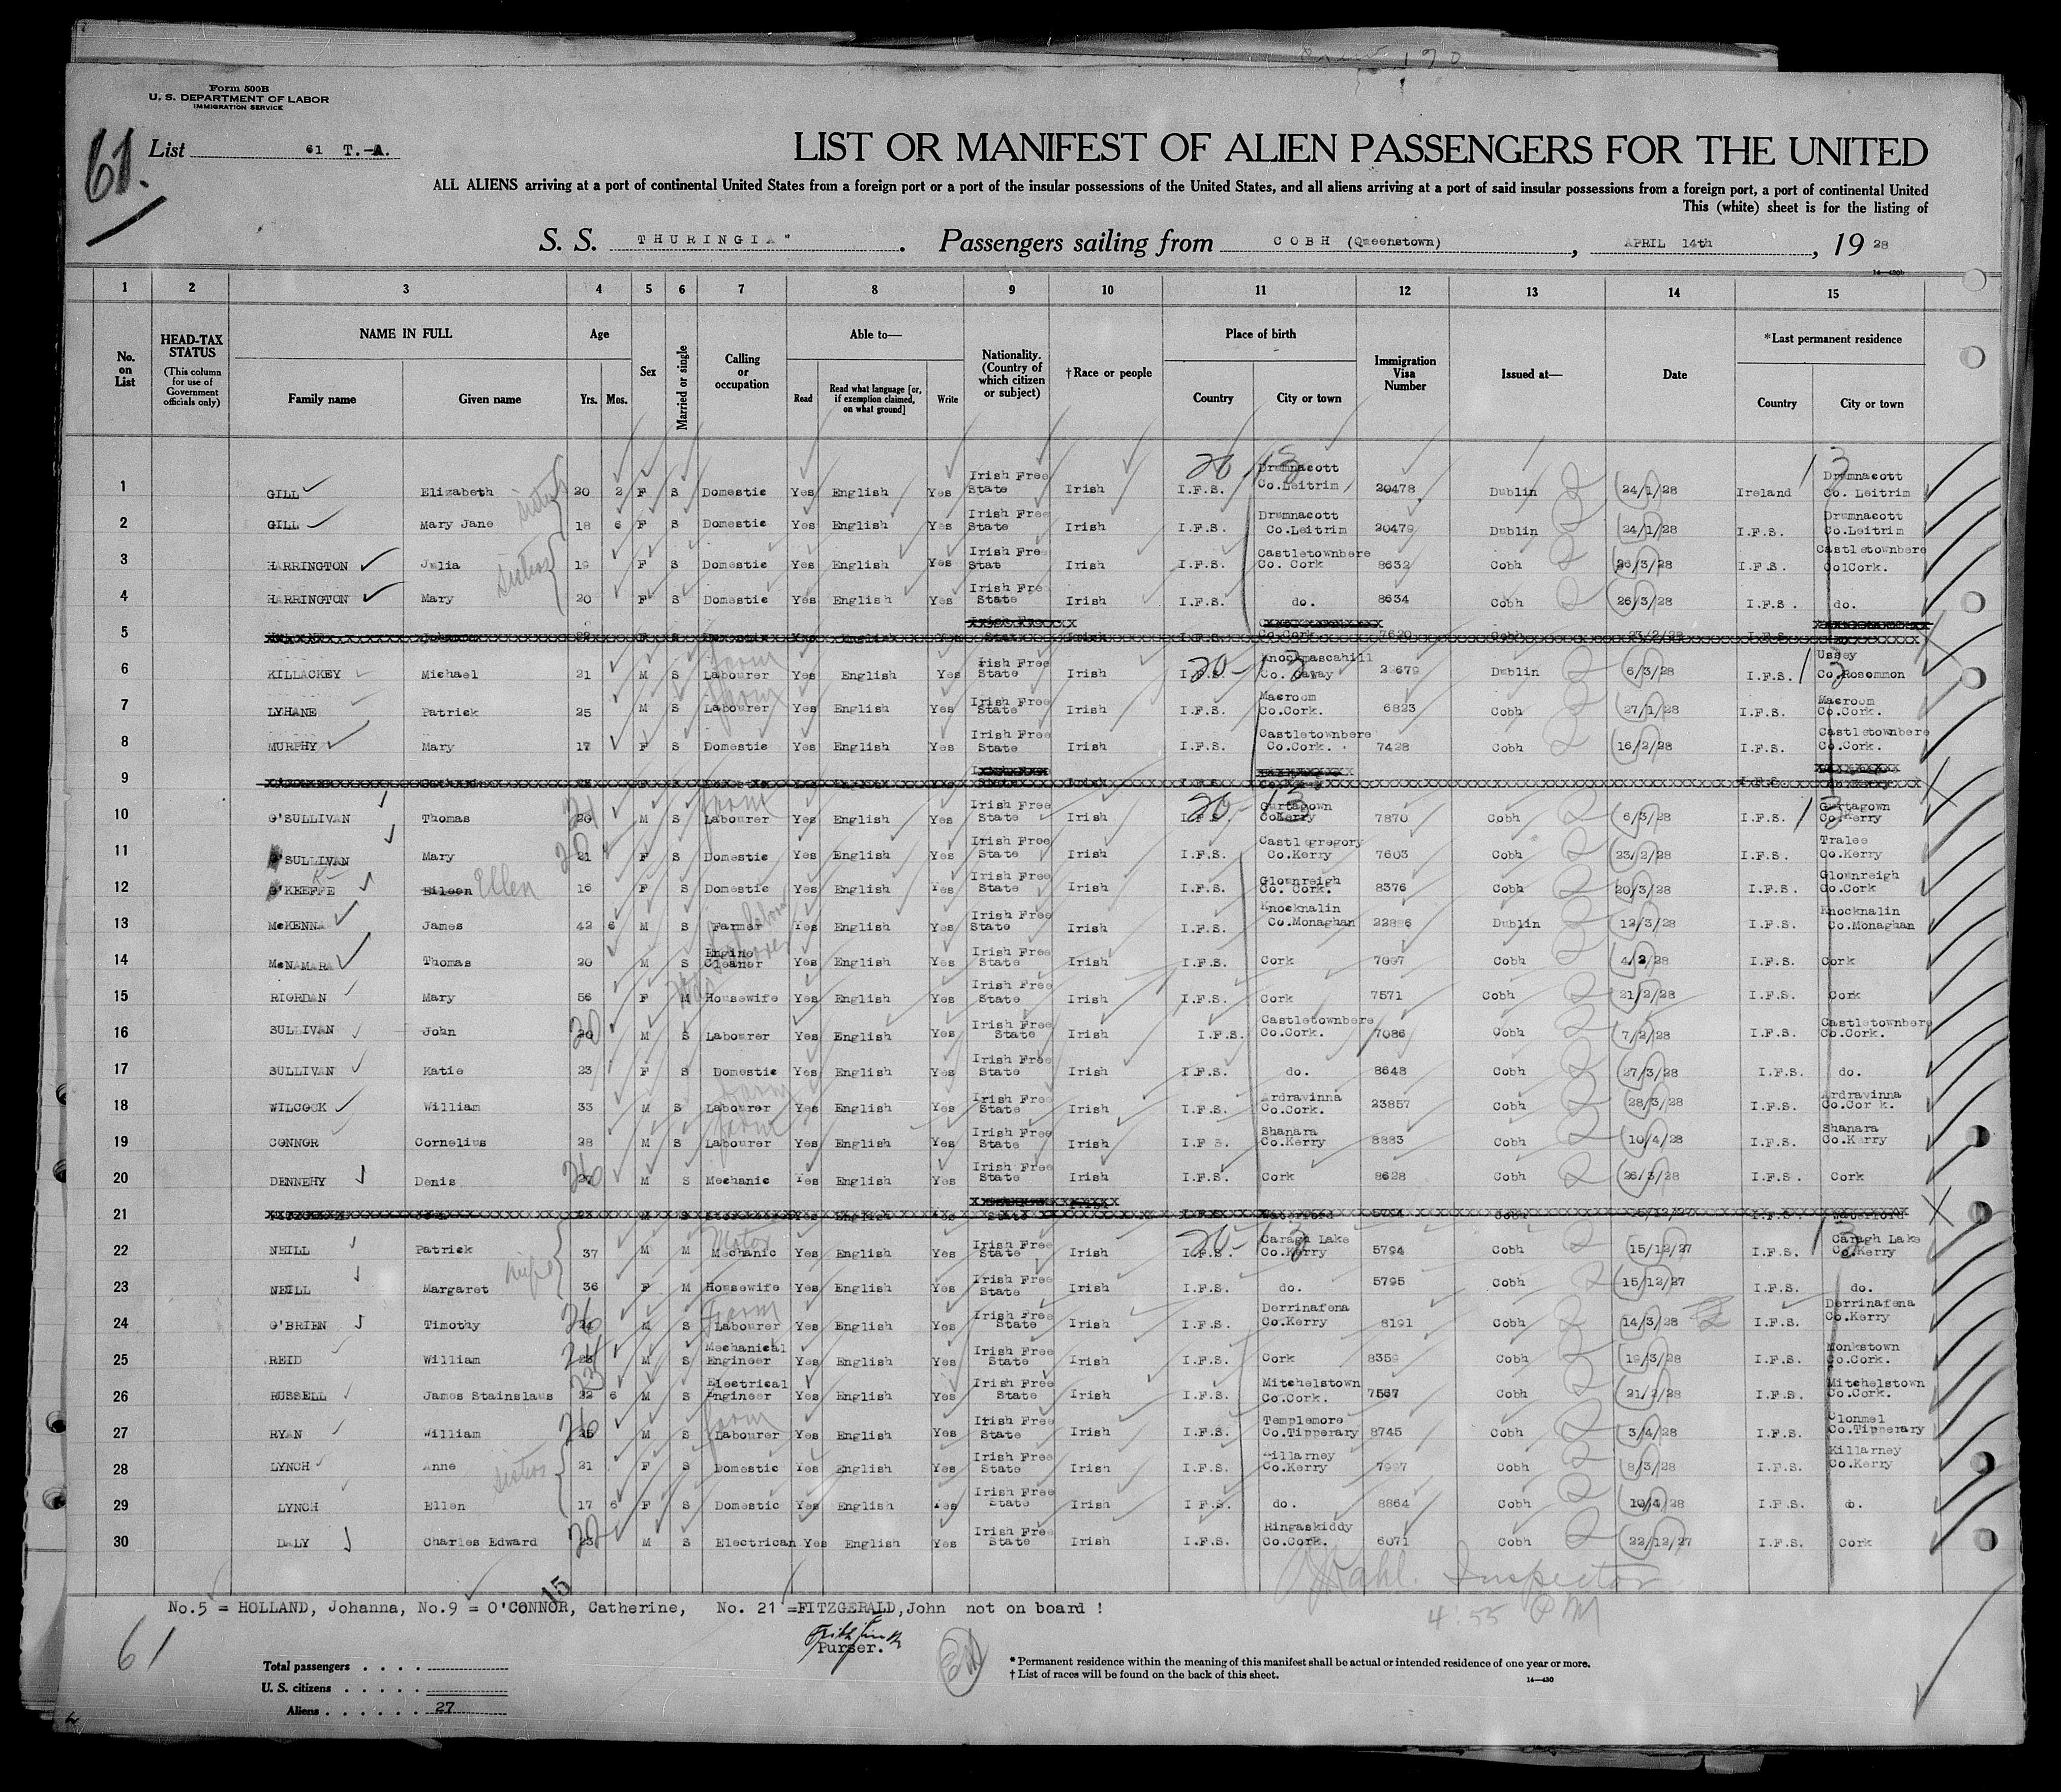 Form 500B
U. S. DEPARTMENT OF LABOR
IMMIGRATION SERVICE
61.
List 61 T.-A.
LIST OR MANIFEST OF ALIEN PASSENGERS FOR THE UNITED
ALL ALIENS arriving at a port of continental United States from a foreign port or a port of the insular possessions of the United States, and all aliens arriving at a port of said insular possessions from a foreign port, a port of continental United
This (white) sheet is for the listing of
S. S. THURINGIA" . Passengers sailing from COBH (Queenstown) , APRIL 14th , 19 28
14—430b
1 2 3 4 5 6 7 8 9 10 11 12 13 14 15
No. on List HEAD-TAX STATUS (This column for use of Government officials only) NAME IN FULL Family name Given name Age Yrs. Mos. Sex Married or single Calling or occupation Able to— Read Read what language [or, if exemption claimed, on what ground] Write Nationality. (Country of which citizen or subject) †Race or people Place of birth Country City or town Immigration Visa Number Issued at— Date *Last permanent residence Country City or town
1 GILL Elizabeth sisters 20 2 F S Domestic Yes English Yes Irish Free State Irish I.F.S. Drumnacott Co.Leitrim 20478 Dublin 24/1/28 Ireland Drumnacott Co. Leitrim
2 GILL Mary Jane 18 6 F S Domestic Yes English Yes Irish Free State Irish I.F.S. Drumnacott Co.Leitrim 20479 Dublin 24/1/28 I.F.S. Drumnacott Co.Leitrim
3 HARRINGTON Julia sisters 19 F S Domestic Yes English Yes Irish Free State Irish I.F.S. Castletownbere Co. Cork 8632 Cobh 26/3/28 I.F.S. Castletownbere ColCork.
4 HARRINGTON Mary 20 F S Domestic Yes English Yes Irish Free State Irish I.F.S. do. 8634 Cobh 26/3/28 I.F.S. do.
5
6 KILLACKEY Michael 21 M S Farm Labourer Yes English Yes Irish Free State Irish I.F.S. Co. Galway Dublin 6/3/28 I.F.S. Co.Rosommon
7 LYHANE Patrick 25 M S Farm Labourer Yes English Yes Irish Free State Irish I.F.S. Macroom Co.Cork. 6823 Cobh 27/1/28 I.F.S. Macroom Co.Cork.
8 MURPHY Mary 17 F S Domestic Yes English Yes Irish Free State Irish I.F.S. Castletownbere Co.Cork. 7428 Cobh 16/2/28 I.F.S. Castletownbere Co.Cork.
9
10 O'SULLIVAN Thomas 20 21 M S Farm Labourer Yes English Yes Irish Free State Irish I.F.S. Gurtagown CoKerry 7870 Cobh 6/3/28 I.F.S. Gurtagown Co.Kerry
11 O'SULLIVAN Mary 21 20 F S Domestic Yes English Yes Irish Free State Irish I.F.S. Castlegregory Co.Kerry 7603 Cobh 23/2/28 I.F.S. Tralee Co.Kerry
12 O'KEEFFE Eileen Ellen 16 F S Domestic Yes English Yes Irish Free State Irish I.F.S. Glownreigh Co. Cork. 8376 Cobh 20/3/28 I.F.S. Glownreigh Co.Cork
13 McKENNA James 42 6 M S Farmer Yes English Yes Irish Free State Irish I.F.S. Knocknalin Co.Monaghan 22886 Dublin 12/3/28 I.F.S. Knocknalin Co.Monaghan
14 McNAMARA Thomas 20 M S Engine Cleaner Yes English Yes Irish Free State Irish I.F.S. Cork 7097 Cobh 4/2/28 I.F.S. Cork
15 RIORDAN Mary 56 F M Housewife Yes English Yes Irish Free State Irish I.F.S. Cork 7571 Cobh 21/2/28 I.F.S. Cork
16 SULLIVAN John 20 M S Labourer Yes English Yes Irish Free State Irish I.F.S. Castletownbere Co.Cork. 7086 Cobh 7/2/28 I.F.S. Castletownbere Co.Cork.
17 SULLIVAN Katie 23 F S Domestic Yes English Yes Irish Free State Irish I.F.S. do. 8648 Cobh 27/3/28 I.F.S. do.
18 WILCOCK William 33 M S Farm Labourer Yes English Yes Irish Free State Irish I.F.S. Ardrawinna Co.Cork. 23857 Cobh 28/3/28 I.F.S. Ardrawinna Co.Cor k.
19 CONNOR Cornelius 28 M S Farm Labourer Yes English Yes Irish Free State Irish I.F.S. Shanara Co.Kerry 8883 Cobh 10/4/28 I.F.S. Shanara Co.Kerry
20 DENNEHY Denis 26 M S Mechanic Yes English Yes Irish Free State Irish I.F.S. Cork 8628 Cobh 26/3/28 I.F.S. Cork
21
22 NEILL Patrick 37 M M Motor Mechanic Yes English Yes Irish Free State Irish I.F.S. Caragh Lake Co.Kerry 5794 Cobh 15/12/27 I.F.S. Caragh Lake Co.Kerry
23 NEILL Margaret wife 36 F M Housewife Yes English Yes Irish Free State Irish I.F.S. do. 5795 Cobh 15/12/27 I.F.S. do.
24 O'BRIEN Timothy 26 M S Farm Labourer Yes English Yes Irish Free State Irish I.F.S. Derrinafena Co.Kerry 8191 Cobh 14/3/28 I.F.S. Derrinafena Co.Kerry
25 REID William M S Mechanical Engineer Yes English Yes Irish Free State Irish I.F.S. Cork 8359 Cobh 19/3/28 I.F.S. Monkstown Co.Cork.
26 RUSSELL James Stainslaus 22 6 M S Electrical Engineer Yes English Yes Irish Free State Irish I.F.S. Mitchelstown Co.Cork. 7567 Cobh 21/2/28 I.F.S. Mitchelstown Co.Cork.
27 RYAN William 26 M S Farm Labourer Yes English Yes Irish Free State Irish I.F.S. Templemore Co.Tipperary 8745 Cobh 3/4/28 I.F.S. Clonmel Co.Tipperary
28 LYNCH Anne sisters 21 F S Domestic Yes English Yes Irish Free State Irish I.F.S. Killarney Co.Kerry Cobh 8/3/28 I.F.S. Killarney Co.Kerry
29 LYNCH Ellen 17 6 F S Domestic Yes English Yes Irish Free State Irish I.F.S. do. 8864 Cobh 10/4/28 I.F.S. do.
30 DALY Charles Edward 23 M S Electrican Yes English Yes Irish Free State Irish I.F.S. Ringaskiddy Co.Cork. 6071 Cobh 22/12/27 I.F.S. Cork
Inspector
4:55 PM
15
No.5 = HOLLAND, Johanna, No.9 = O'CONNOR, Catherine, No. 21 =FITZGERALD,John not on board !
Purser.
61
Total passengers . . . .
U. S. citizens . . . . .
Aliens . . . . . . 27
* Permanent residence within the meaning of this manifest shall be actual or intended residence of one year or more.
† List of races will be found on the back of this sheet.
14—430